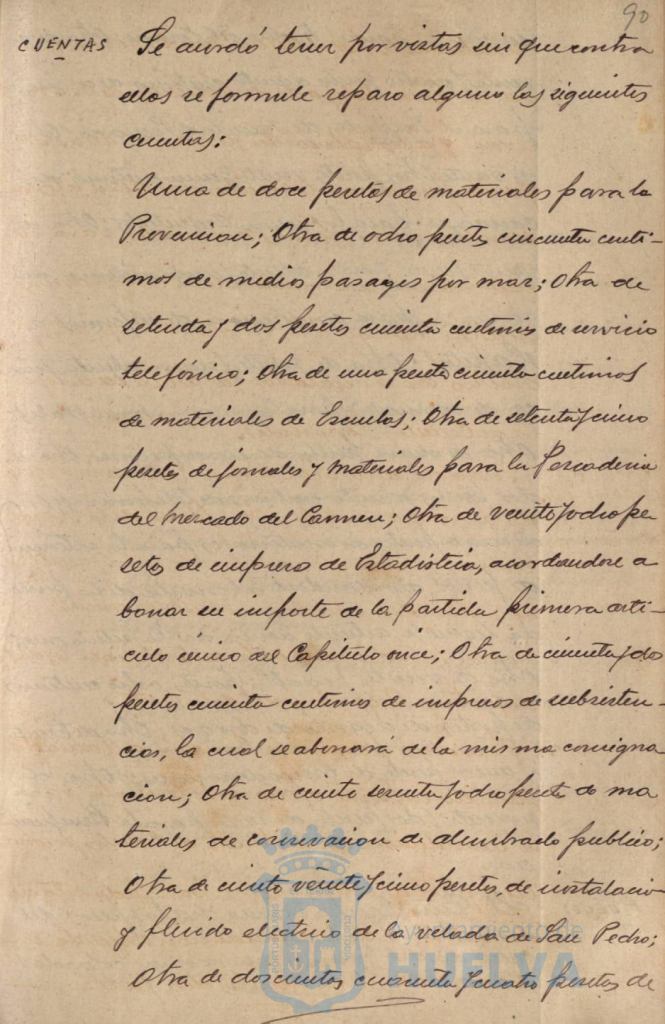 90
CUENTAS
Se acordó tener por vistas sin que contra
ellas se formule reparo alguno las siguientes
cuentas:
Una de doce pesetas de materiales para la
Prevencion; Otra de ocho pesetas cincuenta centi-
mos de medios pasages por mar; Otra de
setenta y dos pesetas cincuenta centimos de servicio
telefónico; Otra de una peseta cincuenta centimos
de materiales de Escuelas; Otra de setenta y cinco
pesetas de jornales y materiales para la Pescaderia
del Mercado del Carmen; Otra de veinte y ocho pe-
setas de impresos de Estadística, acordandose a
bonar su importe de la partida primera arti-
culo único del Capitulo once; Otra de cincuenta y dos
pesetas cincuenta centimos de impresos de subsisten-
cias, la cual se abonará de la misma consigna
cion; Otra de ciento sesenta y ocho pesetas de ma
teriales de conservacion de alumbrado publico;
Otra de ciento veinte y cinco pesetas, de instalacion
y fluido electrico de la velada de San Pedro;
Otra de doscientas cuarenta y cuatro pesetas de
Ayuntamiento de
HUELVA